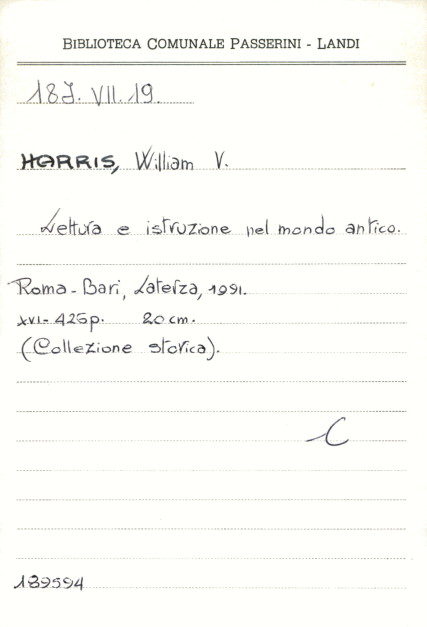 BIBLIOTECA COMUNALE PASSERINI - LANDI
18J. VII. 19.
HARRIS, William V.
Lettura e istruzione nel mondo antico.
Roma - Bari, Laterza, 1991.
XVI- 425 p. 20 cm.
(Collezione storica).
C
189594